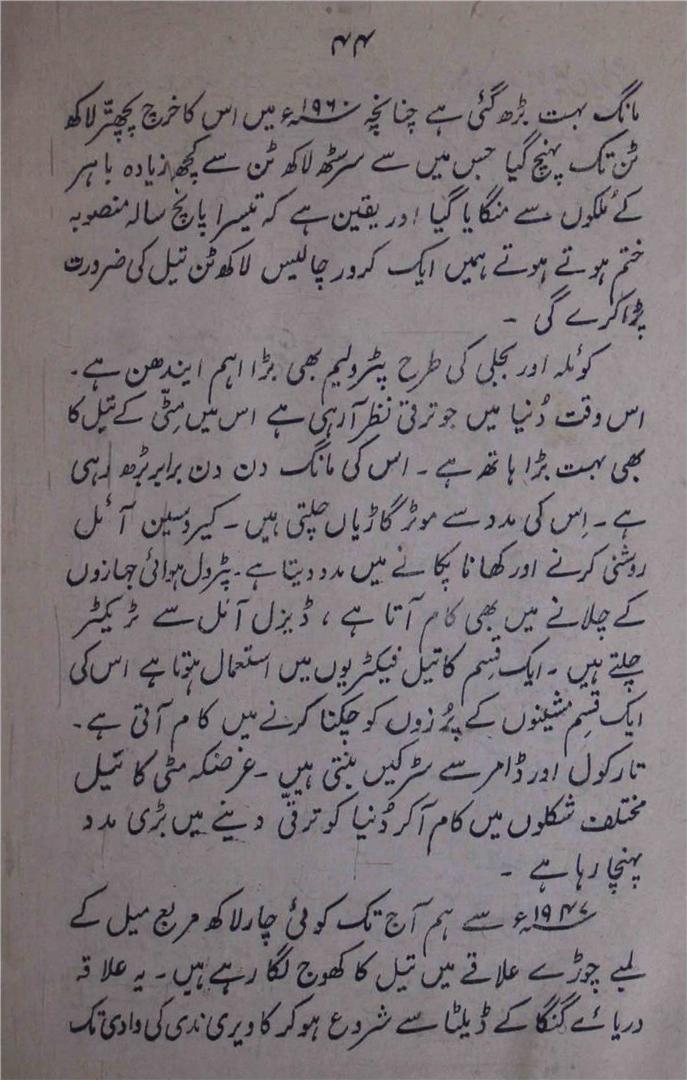 ۴۴
مانگ بہت بڑھ گئی ہے چنانچہ ۱۹۶۰ء میں اس کا خرچ پچھتّر لاکھ
ٹن تک پہنچ گیا جس میں سے سرسٹھ لاکھ ٹن سے کچھ زیادہ باہر
کے مُلکوں سے منگایا گیا اور یقین ہے کہ تیسرا پانچ سالہ منصوبہ
ختم ہوتے ہوتے ہمیں ایک کرور چالیس لاکھ ٹن تیل کی ضرورت
پڑا کرے گی ۔
کوئلہ اور بجلی کی طرح پٹرولیم بھی بڑا اہم ایندھن ہے۔
اس وقت دُنیا میں جو ترقی نظر آرہی ہے اس میں مِٹّی کے تیل کا
بھی بہت بڑا ہاتھ ہے ۔ اس کی مانگ دن دن برابر بڑھ رہی
ہے ۔ اِس کی مدد سے موٹر گاڑیاں چلتی ہیں ۔ کیروسین آئل
روشنی کرنے اور کھانا پکانے میں مدد دیتا ہے۔ پٹرول ہوائی جہازوں
کے چلانے میں بھی کام آتا ہے ، ڈیزل آئل سے ٹریکٹر
چلتے ہیں ۔ ایک قِسم کا تیل فیکٹریوں میں استعمال ہوتا ہے اس کی
ایک قسم مشینوں کے پُرزوں کو چکنا کرنے میں کام آتی ہے۔
تارکول اور ڈامر سے سڑکیں بنتی ہیں ۔ غرضکہ مٹی کا تیل
مختلف شکلوں میں کام آکر دُنیا کو ترقّی دینے میں بڑی مدد
پہنچا رہا ہے ۔
۱۹۴۷ء سے ہم آج تک کوئی چار لاکھ مربع میل کے
لمبے چوڑے علاقے میں تیل کا کھوج لگا رہے ہیں ۔ یہ علاقہ
دریائے گنگا کے ڈیلٹا سے شروع ہوکر کاویری ندی کی وادی تک